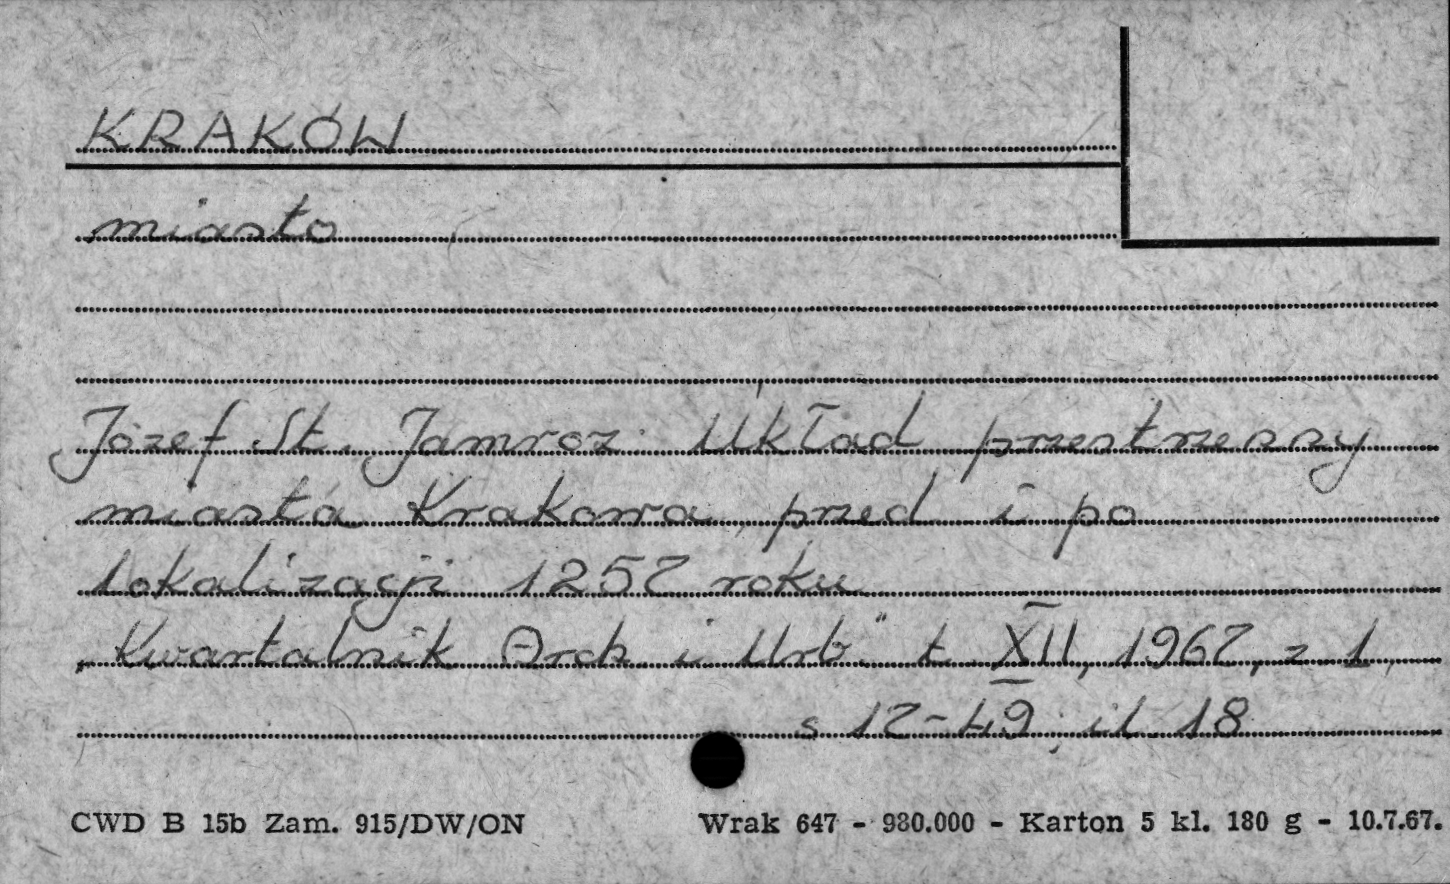 KRAKÓW
miasto
Józef St. Jamroz. Układ przestrzenny
miasta Krakowa przed i po
lokalizacji 1257 roku
„Kwartalnik Arch i Urb" t. XII, 1967, z 1,
s 17-49, il. 18
CWD B 15b Zam. 915/DW/ON
Wrak 647 - 980.000 - Karton 5 kl. 180 g - 10.7.67.